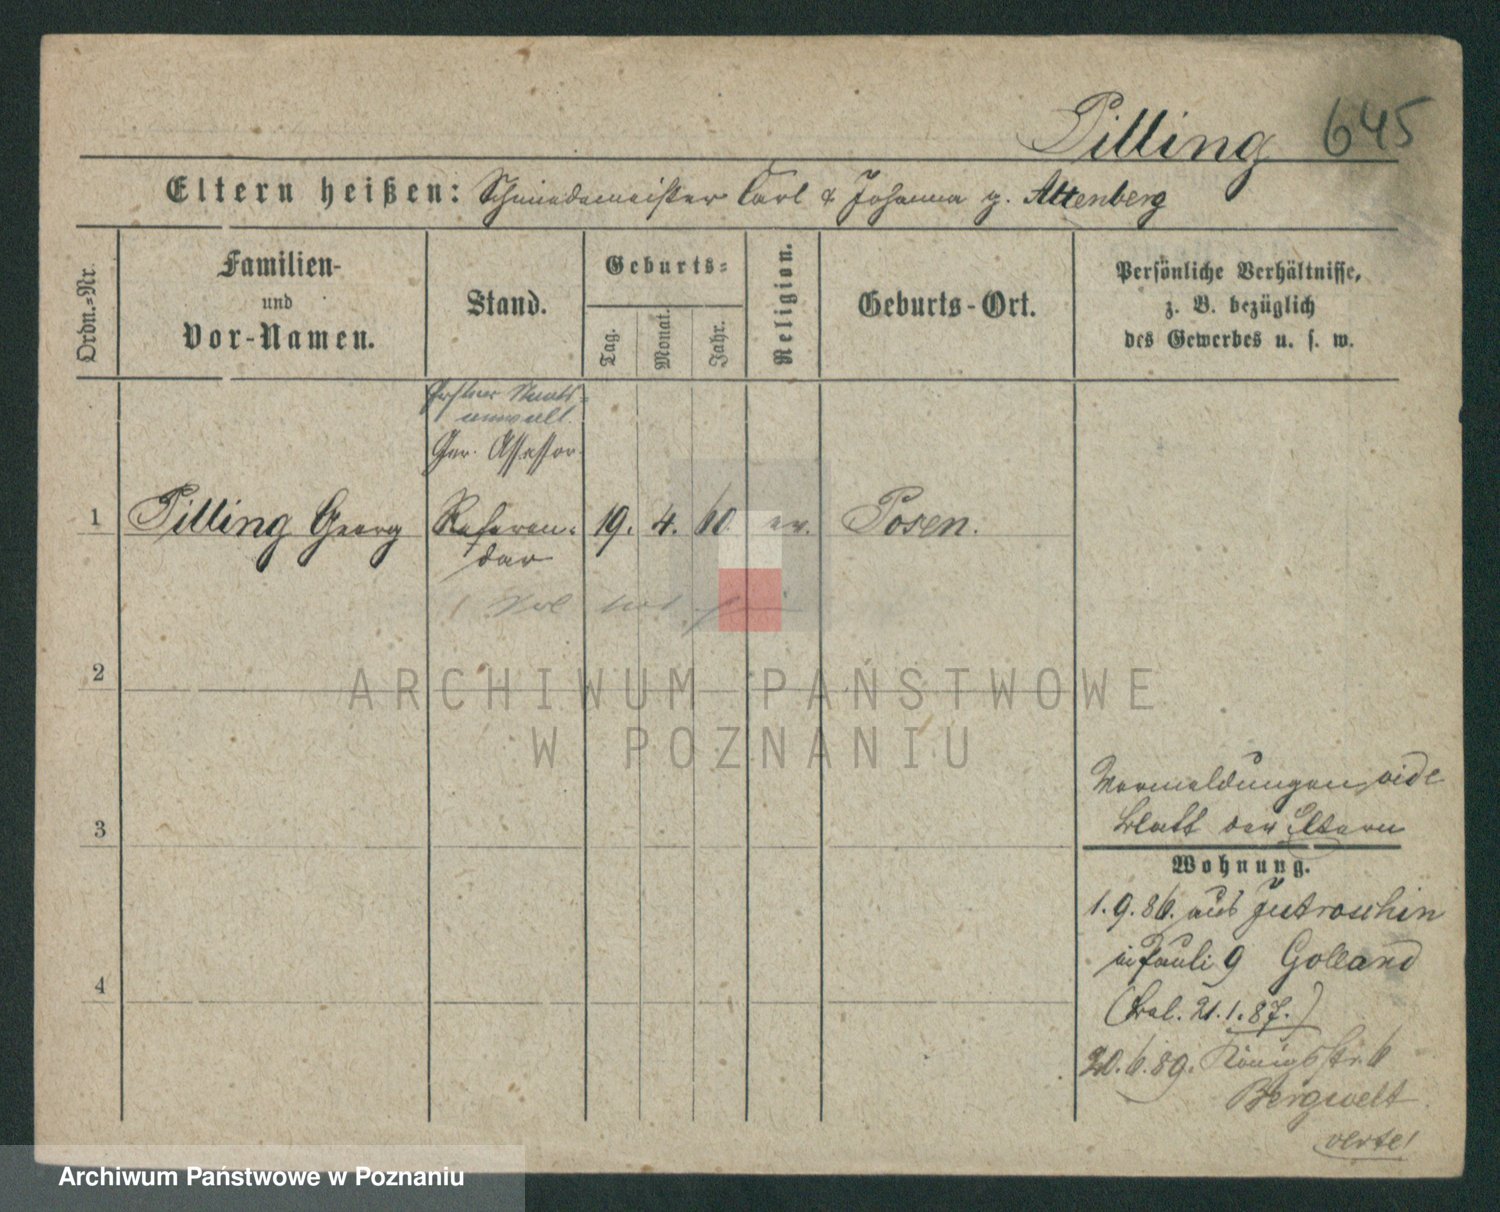 Pilling 645
Eltern heißen: Schmiedemeister Carl & Johanna g. Altenberg
Ordn.=Nr.
Familien-
und
Vor-Namen.
Stand.
Geburts=
Tag.
Monat.
Jahr.
Religion.
Geburts-Ort.
Persönliche Verhältnisse,
z. B. bezüglich
des Gewerbes u. s. w.
Erster Staats=
anwalt.
Ger. Assessor.
1 Pilling Georg Referen= 19. 4. 60. ev. Posen.
dar
2
ARCHIWUM PAŃSTWOWE
W POZNANIU
Vermeldungen vide
3 Blatt der Eltern
Wohnung.
1.9.86. aus Jutroschin
in Pauli 9 Golland
4
21.1.87.)
20.6.89. Königsstr. 6
Bergwelt
verte!
Archiwum Państwowe w Poznaniu